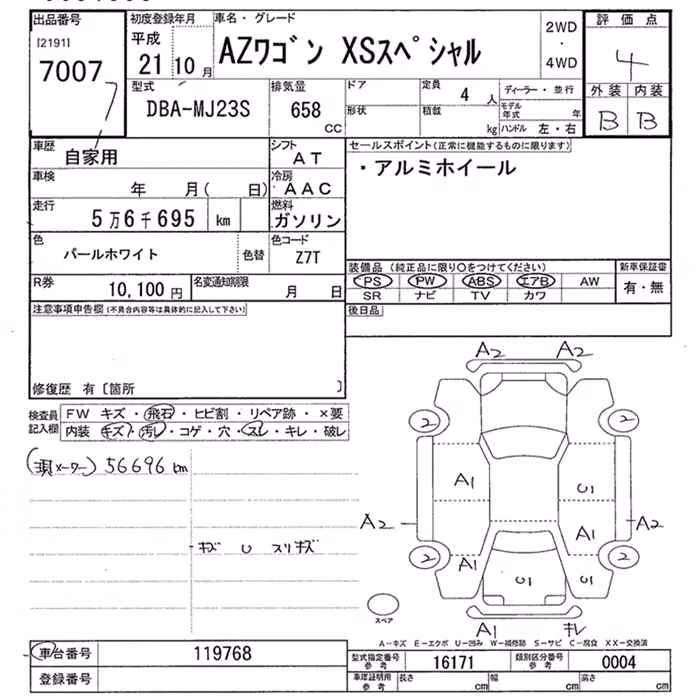 出品番号 初度登録年月 車名・グレード 評価点
[2191] 平成
7007 21 10月 AZワゴン XSスペシャル 2WD・4WD 4
型式 排気量 ドア 定員 4 人 ディーラー・並行 外装 内装
DBA-MJ23S 658 CC 形状 積載 kg モデル年式 年 B B
ハンドル 左・右
車歴 自家用 シフト AT セールスポイント(正常に機能するものに限ります)
・アルミホイール
車検 年 月( 日) 冷房 AAC
走行 5万6千695 km 燃料 ガソリン
色 パールホワイト 色替 色コード Z7T
装備品(純正品に限り○をつけてください) 新車保証書
R券 10,100円 名変通知期限 月 日 PS PW ABS エアB AW 有・無
SR ナビ TV カワ
注意事項申告欄(不具合内容等は具体的に記入して下さい) 後日品
修復歴 有〔箇所 〕
検査員記入欄 FW キズ・飛石・ヒビ割・リペア跡・×要
内装 キズ・汚レ・コゲ・穴・スレ・キレ・破レ
(現メーター) 56696 km
キズ U スリキズ
A2 A2
2 2
A1 U1
A2 A1 A2
2 A1 2
U1 U1
スペア
A1 キレ
A-キズ E-エクボ U-凹み W-補修跡 S-サビ C-腐食 XX-交換済
車台番号 119768 型式指定番号 参考 16171 類別区分番号 参考 0004
登録番号 車庫証明用 参考 長さ cm 幅 cm 高さ cm